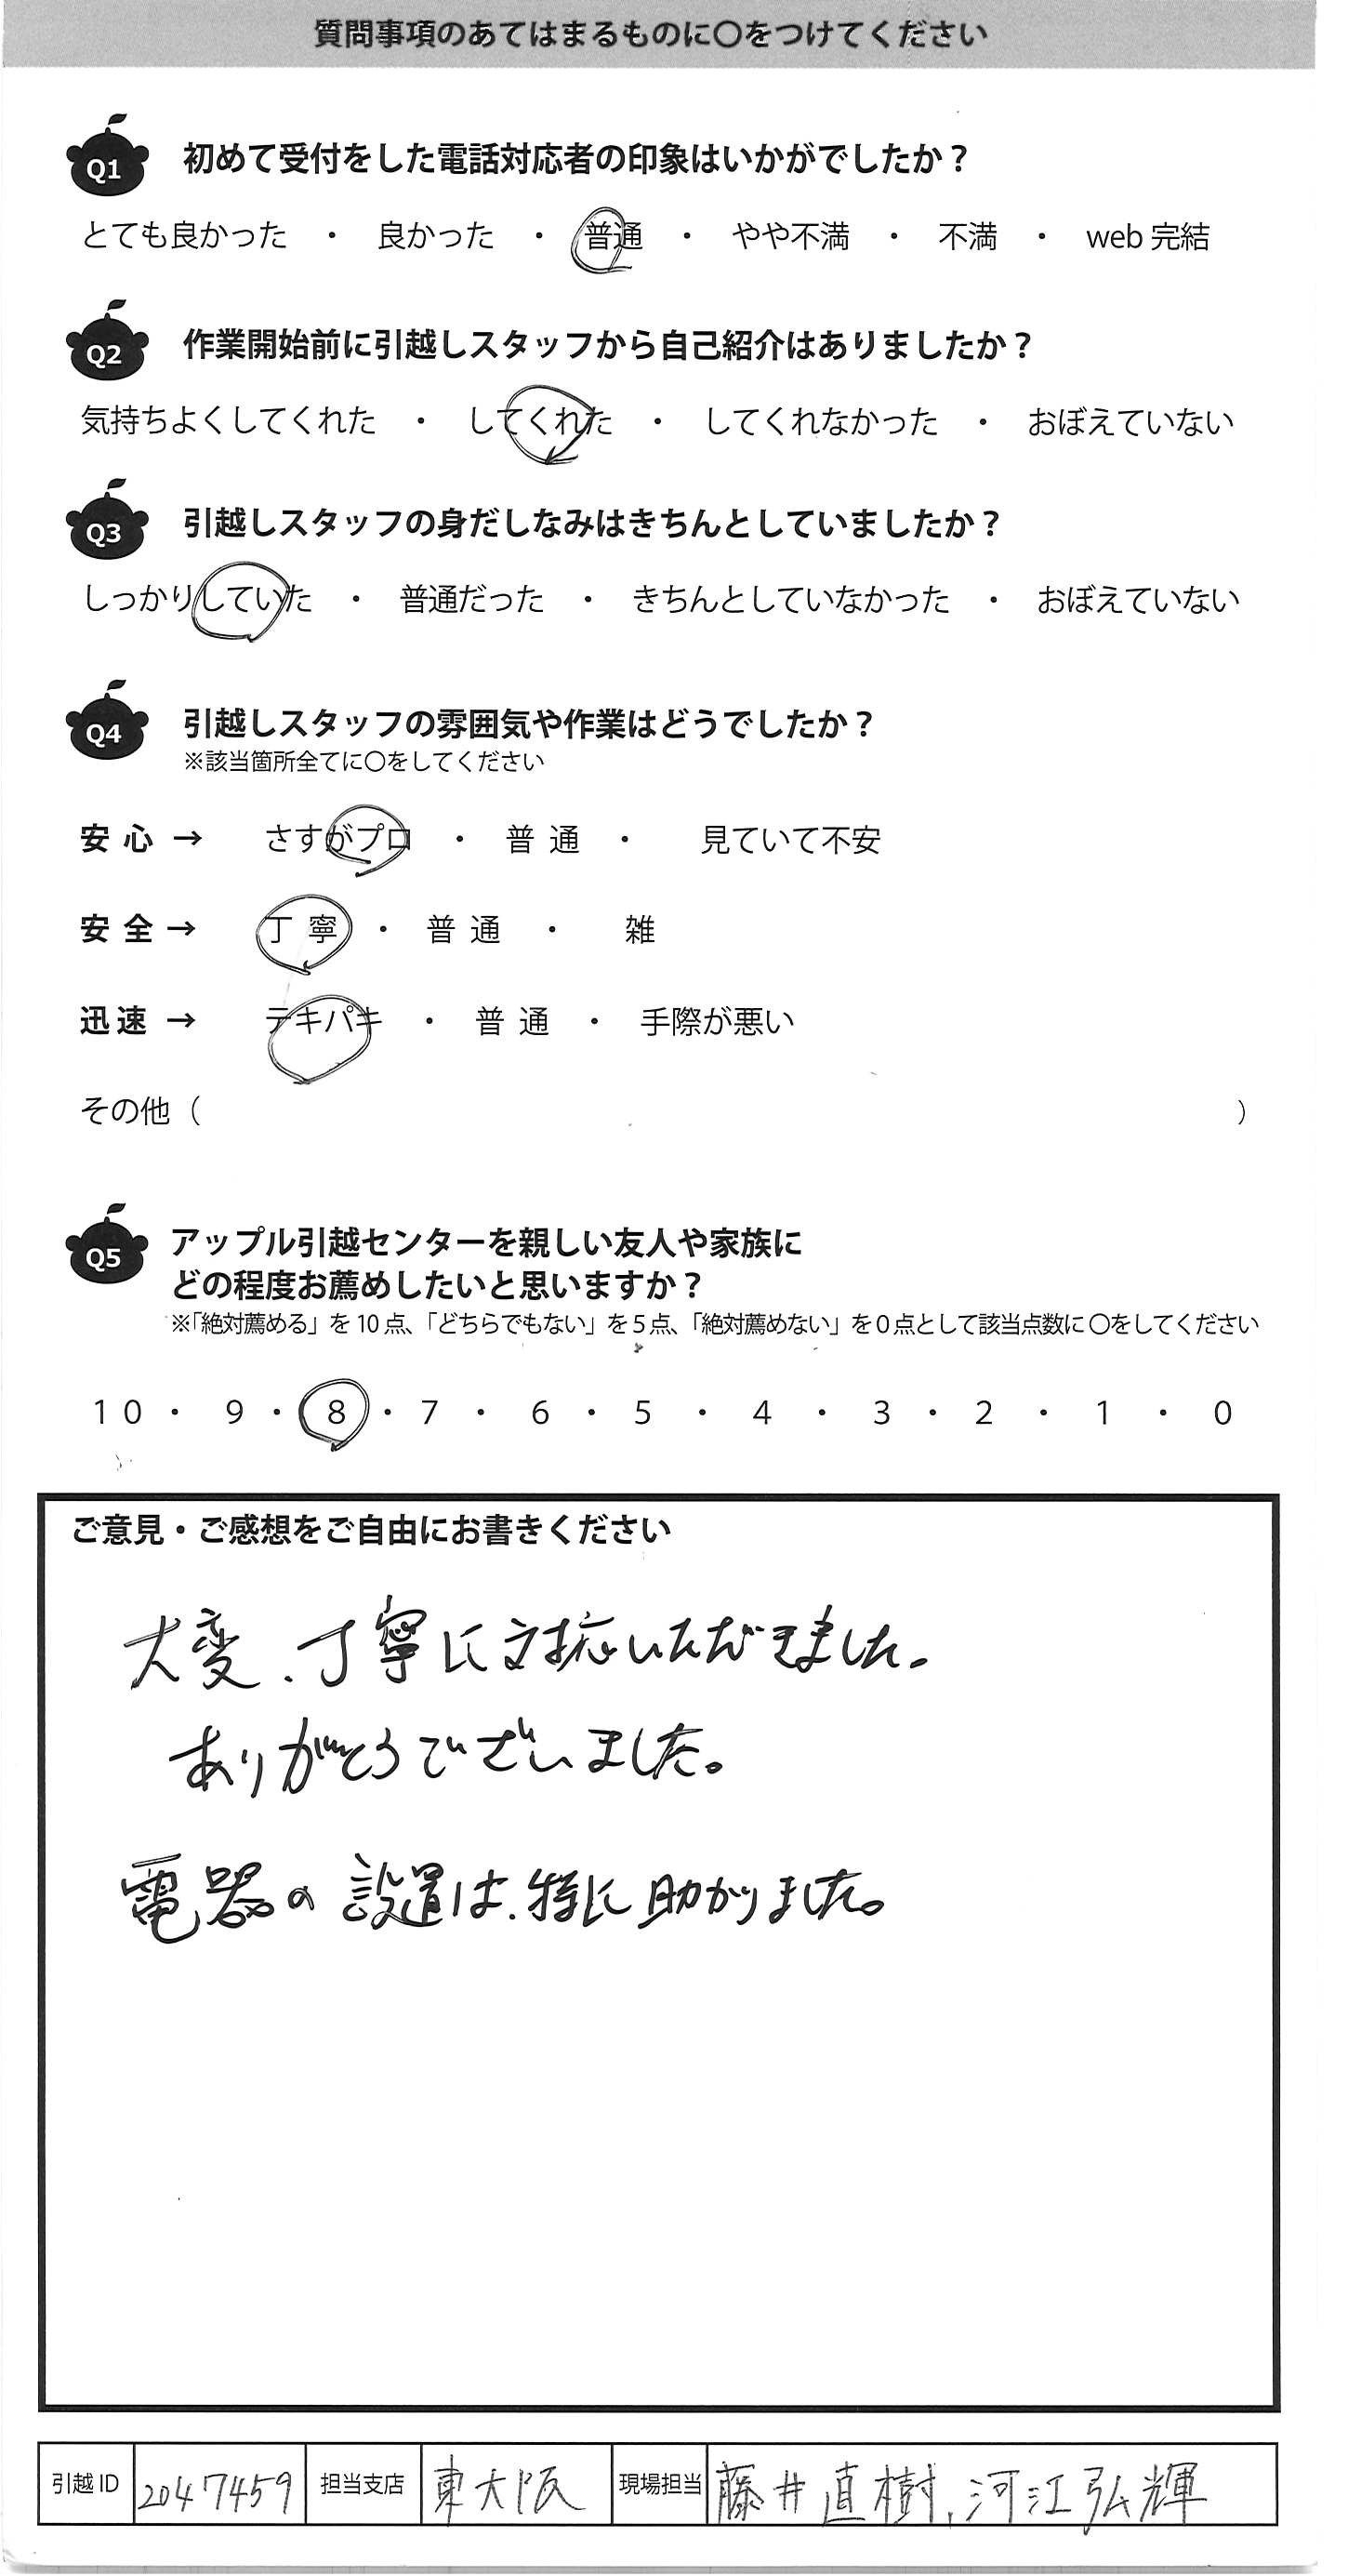 質問事項のあてはまるものに〇をつけてください
Q1 初めて受付をした電話対応者の印象はいかがでしたか？
とても良かった ・ 良かった ・ 普通 ・ やや不満 ・ 不満 ・ web 完結
Q2 作業開始前に引越しスタッフから自己紹介はありましたか？
気持ちよくしてくれた ・ してくれた ・ してくれなかった ・ おぼえていない
Q3 引越しスタッフの身だしなみはきちんとしていましたか？
しっかりしていた ・ 普通だった ・ きちんとしていなかった ・ おぼえていない
Q4 引越しスタッフの雰囲気や作業はどうでしたか？
※該当箇所全てに〇をしてください
安心 → さすがプロ ・ 普通 ・ 見ていて不安
安全 → 丁寧 ・ 普通 ・ 雑
迅速 → テキパキ ・ 普通 ・ 手際が悪い
その他（ ）
Q5 アップル引越センターを親しい友人や家族に
どの程度お薦めしたいと思いますか？
※「絶対薦める」を10点、「どちらでもない」を5点、「絶対薦めない」を0点として該当点数に〇をしてください
10 ・ 9 ・ 8 ・ 7 ・ 6 ・ 5 ・ 4 ・ 3 ・ 2 ・ 1 ・ 0
ご意見・ご感想をご自由にお書きください
大変、丁寧に対応いただきました。
ありがとうございました。
電器の設置は、特に助かりました。
引越ID 2047459 担当支店 東大阪 現場担当 藤井直樹、河江弘輝